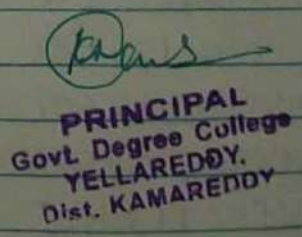 PRINCIPAL
Govt. Degree College
YELLAREDDY.
Dist. KAMAREDDY